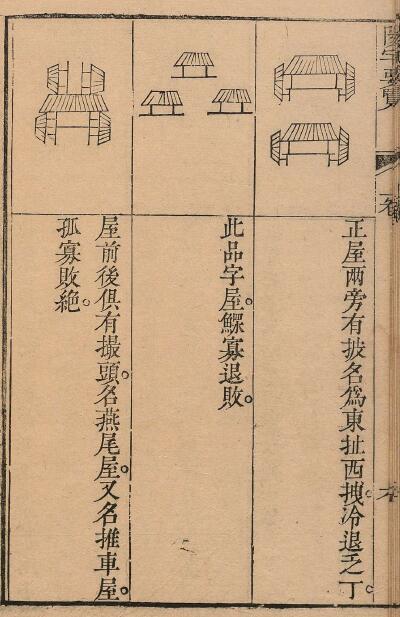 正屋兩旁有披名爲東扯西拽。冷退乏丁。
此品字屋。鰥寡退敗。
屋前後俱有撮頭。名燕尾屋。又名推車屋。
孤寡敗絶。